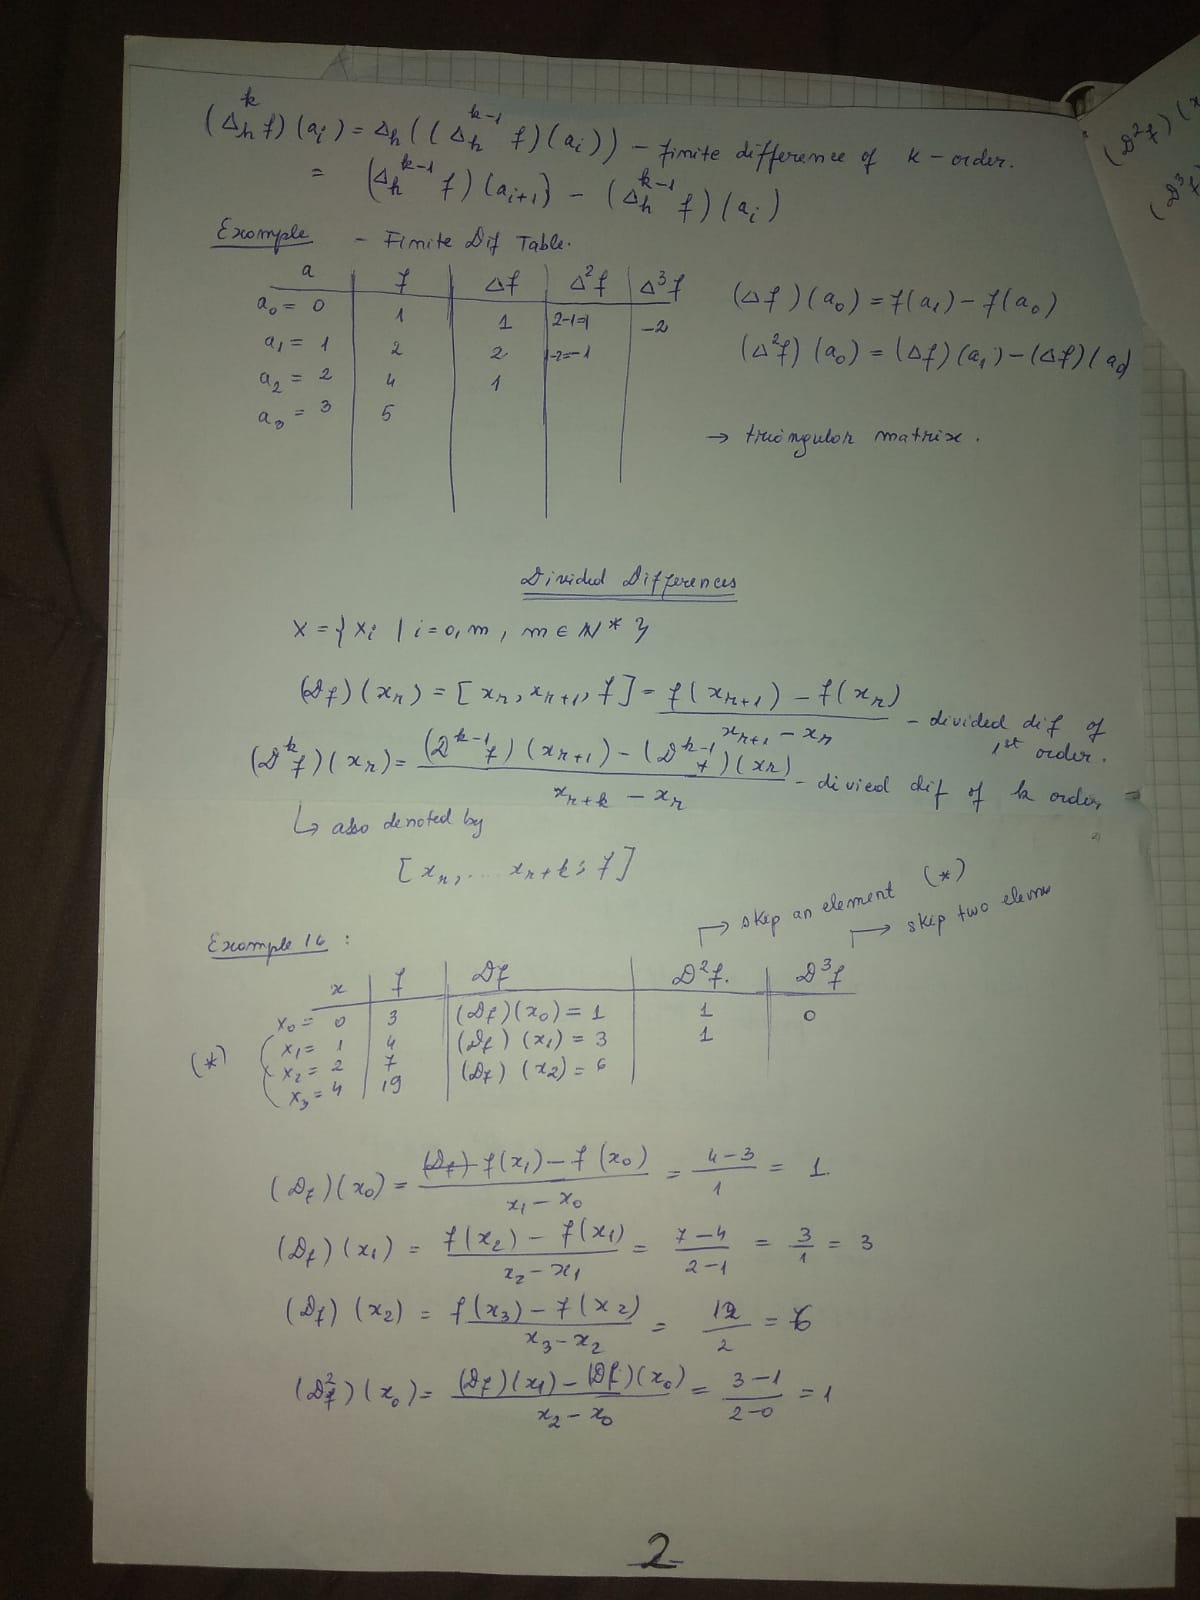 (Δₕᵏ f)(aᵢ) = Δₕ((Δₕᵏ⁻¹ f)(aᵢ)) – finite difference of k – order.
= (Δₕᵏ⁻¹ f)(aᵢ₊₁) – (Δₕᵏ⁻¹ f)(aᵢ)
Example – Finite Dif Table.
a | f | Δf | Δ²f | Δ³f
a₀ = 0 | 1 | 1 | 2-1=1 | -2
a₁ = 1 | 2 | 2 | 1-2=-1
a₂ = 2 | 4 | 1
a₃ = 3 | 5
(Δf)(a₀) = f(a₁) – f(a₀)
(Δ²f)(a₀) = (Δf)(a₁) – (Δf)(a₀)
→ triangular matrix.
Divided Differences
X = { xᵢ | i = 0, m, m ∈ N* }
(Df)(xᵣ) = [xᵣ, xᵣ₊₁, f] = (f(xᵣ₊₁) – f(xᵣ)) / (xᵣ₊₁ – xᵣ) – divided dif of 1st order.
(Dᵏf)(xᵣ) = ((Dᵏ⁻¹f)(xᵣ₊₁) – (Dᵏ⁻¹f)(xᵣ)) / (xᵣ₊ₖ – xᵣ) – divied dif of k order,
↳ also denoted by
[xᵣ, ... xᵣ₊ₖ; f]
→ skip an element (*)
→ skip two eleme
Example 16 :
x | f | Df | D²f. | D³f
x₀ = 0 | 3 | (Df)(x₀) = 1 | 1 | 0
(*) x₁ = 1 | 4 | (Df)(x₁) = 3 | 1
x₂ = 2 | 7 | (Df)(x₂) = 6
x₃ = 4 | 19
(Df)(x₀) = (f(x₁) – f(x₀)) / (x₁ – x₀) = (4 – 3) / 1 = 1.
(Df)(x₁) = (f(x₂) – f(x₁)) / (x₂ – x₁) = (7 – 4) / (2 – 1) = 3/1 = 3
(Df)(x₂) = (f(x₃) – f(x₂)) / (x₃ – x₂) = 12/2 = 6
(D²f)(x₀) = ((Df)(x₁) – (Df)(x₀)) / (x₂ – x₀) = (3 – 1) / (2 – 0) = 1
2
(D²f)(x
(D³f